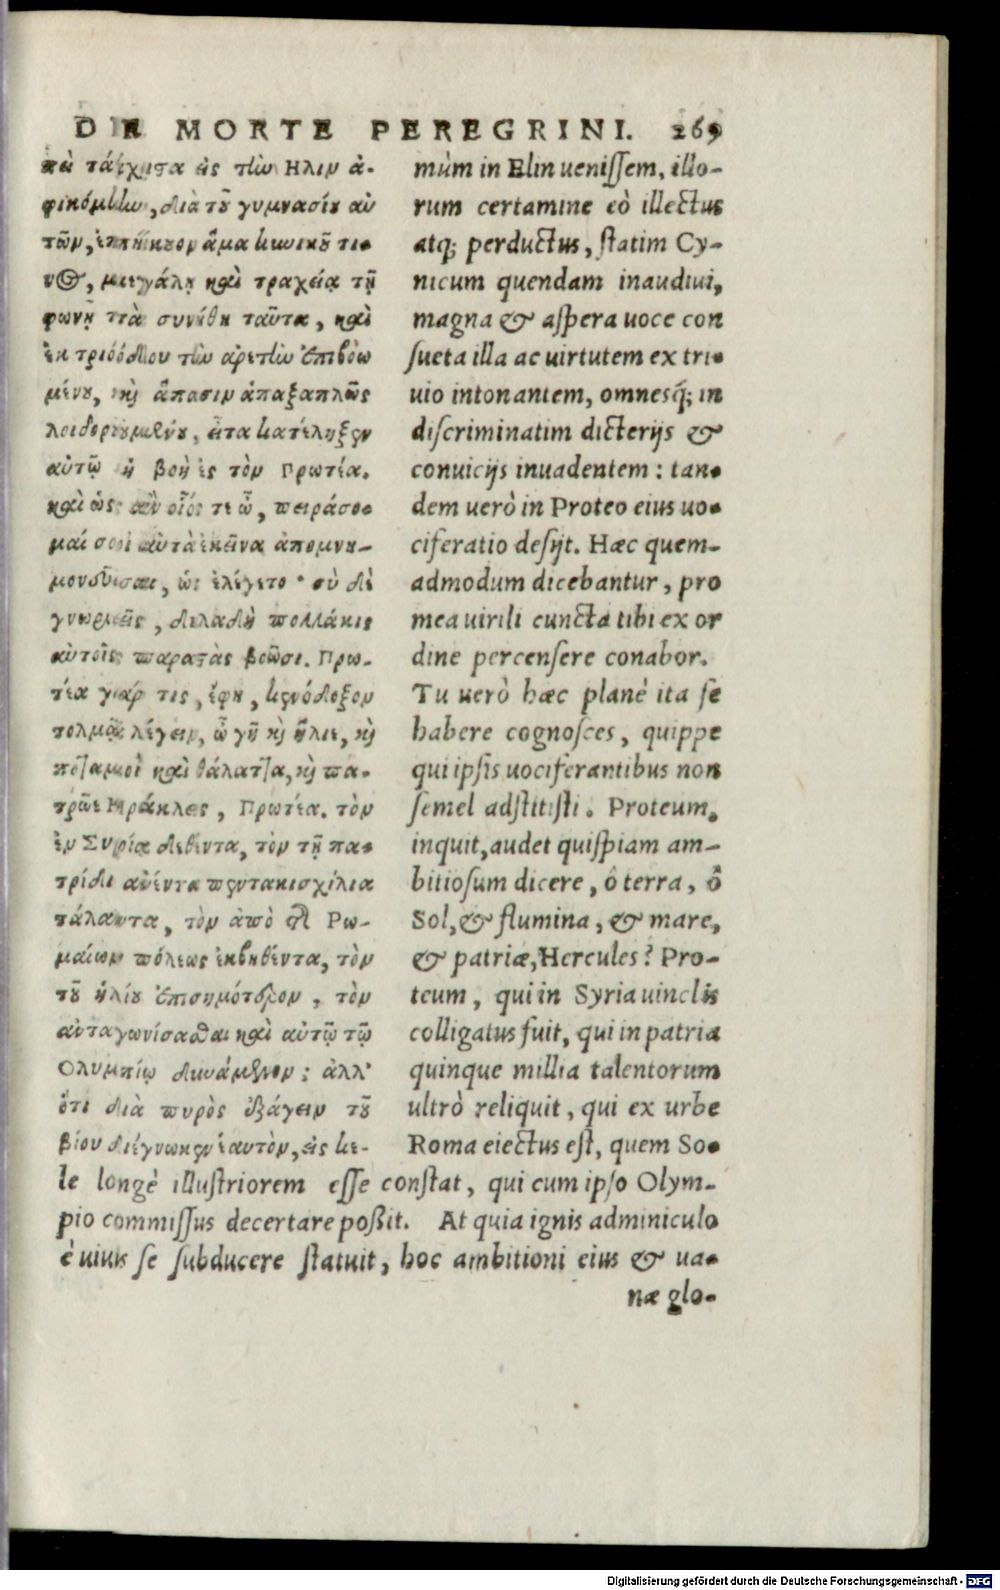 DE MORTE PEREGRINI. 269
πὰ τάχιστα ἐς τὴν Ηλιν ἀ-
φικόμην, διὰ τοῦ γυμνασίου αὐ
τῶν, ἐπήκουον ἅμα κυνικοῦ τι-
νος, μεγάλῃ καὶ τραχείᾳ τῇ
φωνῇ τὰ συνήθη ταῦτα, καὶ
ἐκ τριόδου τὴν ἀρετὴν ἐπιβοω
μένου, καὶ ἅπασιν ἁπαξαπλῶς
λοιδορουμένου, εἶτα κατέληξεν
αὐτῷ ἡ βοὴ ἐς τὸν Πρωτέα.
καὶ ὡς ἂν οἷός τε ὦ, πειράσο-
μαί σοι αὐτὰ ἐκεῖνα ἀπομνη-
μονεῦσαι, ὡς ἐλέγετο · σὺ δὲ
γνωριεῖς, δηλαδὴ πολλάκις
αὐτοῖς παραστὰς βοῶσι. Πρω-
τέα γάρ τις, ἔφη, κενόδοξον
τολμᾷ λέγειν, ὦ γῆ καὶ ἥλιε, καὶ
ποταμοὶ καὶ θάλαττα, καὶ πα-
τρῷε Ηράκλεις, Πρωτέα. τὸν
ἐν Συρίᾳ δεθέντα, τὸν τῇ πα-
τρίδι ἀνέντα πεντακισχίλια
τάλαντα, τὸν ἀπὸ τῆς Ρω-
μαίων πόλεως ἐκβληθέντα, τὸν
τοῦ ἡλίου ἐπισημότερον, τὸν
ἀνταγωνίσασθαι καὶ αὐτῷ τῷ
Ολυμπίῳ δυνάμενον; ἀλλ'
ὅτι διὰ πυρὸς ἐξάγειν τοῦ
βίου διέγνωκεν ἑαυτὸν, εἰς κε-
mùm in Elin uenissem, illo-
rum certamine eò illectus
atq; perductus, statim Cy-
nicum quendam inaudiui,
magna & aspera uoce con
sueta illa ac uirtutem ex tri-
uio intonantem, omnesq́; in
discriminatim dicterijs &
conuicijs inuadentem: tan-
dem uerò in Proteo eius uo-
ciferatio desijt. Hæc quem-
admodum dicebantur, pro
mea uirili cuncta tibi ex or
dine percensere conabor.
Tu uerò hæc planè ita se
habere cognosces, quippe
qui ipsis uociferantibus non
semel adstitisti. Proteum,
inquit, audet quispiam am-
bitiosum dicere, ô terra, ô
Sol, & flumina, & mare,
& patriæ, Hercules? Pro-
teum, qui in Syria uinclis
colligatus fuit, qui in patria
quinque millia talentorum
ultrò reliquit, qui ex urbe
Roma eiectus est, quem So-
le longè illustriorem esse constat, qui cum ipso Olym-
pio commissus decertare poßit. At quia ignis adminiculo
è uiuis se subducere statuit, hoc ambitioni eius & ua-
næ glo-
Digitalisierung gefördert durch die Deutsche Forschungsgemeinschaft - DFG